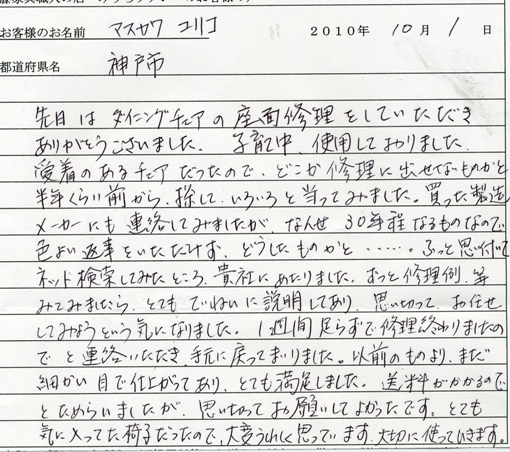 お客様のお名前 マスカワ ユリコ 2010年 10月 1日
都道府県名 神戸市
先日は ダイニングチェアの座面修理をしていただき
ありがとうございました。子育て中、使用しておりました、
愛着のあるチェアだったので、どこか修理に出せないものかと
半年くらい前から、探して、いろいろと当ってみました。買った製造
メーカーにも連絡してみましたが、なんせ 30年程なるものなので
色よい返事をいただけず、どうしたものかと……。ふっと思い付いて
ネット検索してみたところ、貴社にあたりました。ずっと修理例、等
みてみましたら、とてもていねいに説明してあり、思い切って、お任せ
してみようという気になりました。1週間足らずで修理終わりましたの
でと連絡いただき、手元に戻ってまいりました。以前のものより、まだ
細かい目で仕上がってあり、とても満足しました。送料がかかるので
とためらいましたが、思い切ってお願いしてよかったです。とても
気に入ってた椅子だったので、大変うれしく思っています。大切に使っていきます。